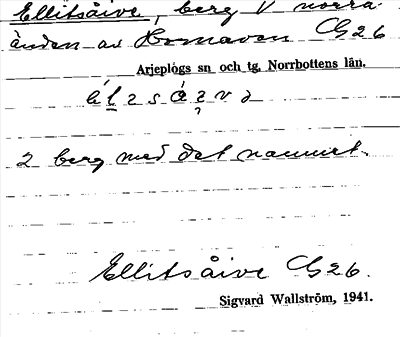 Ellitsåive, berg V norra
änden av Hornavan CG26
Arjeplogs sn och tg, Norrbottens län.
2 berg med det namnet.
Ellitsåive CG26.
Sigvard Wallström, 1941.